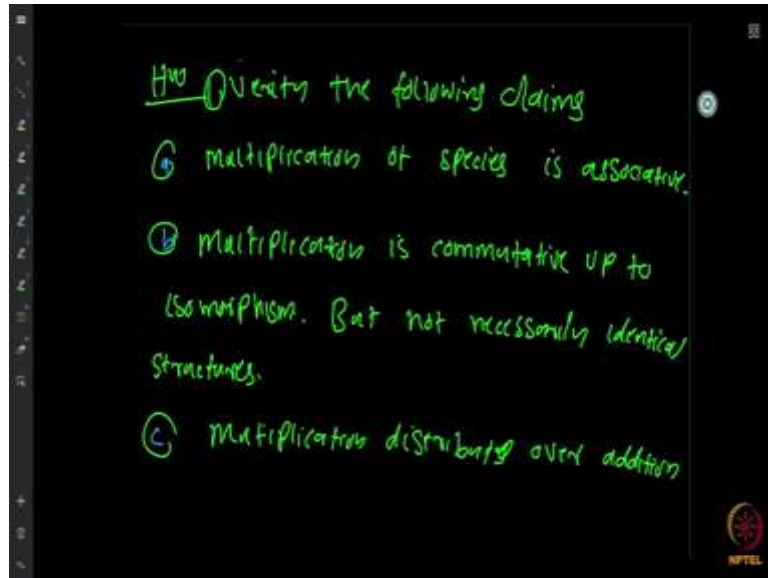 HW ① Verify the following claims
ⓐ multiplication of species is associative.
ⓑ multiplication is commutative up to
isomorphism. But not necessarily identical
structures.
ⓒ Multiplication distributes over addition
NPTEL